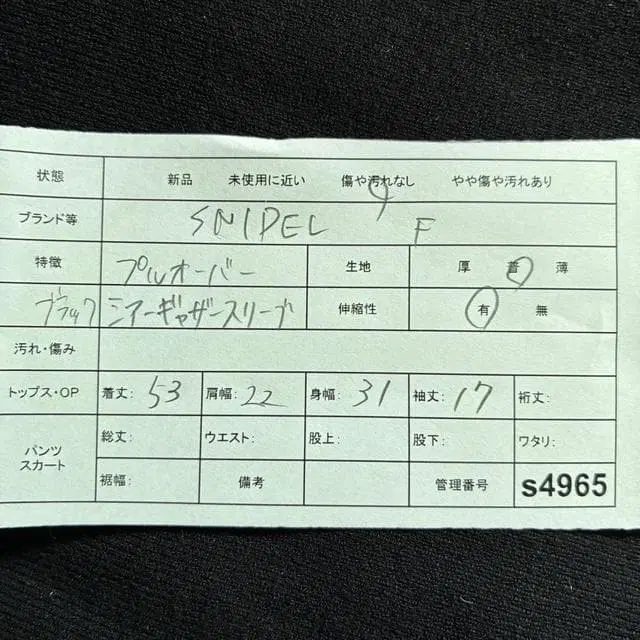 状態 新品 未使用に近い 傷や汚れなし やや傷や汚れあり
ブランド等 SNIDEL F
特徴 プルオーバー 生地 厚 普 薄
ブラック シアーギャザースリーブ 伸縮性 有 無
汚れ・傷み
トップス・OP 着丈: 53 肩幅: 22 身幅: 31 袖丈: 17 裄丈:
パンツ スカート 総丈: ウエスト: 股上: 股下: ワタリ:
裾幅: 備考 管理番号 s4965